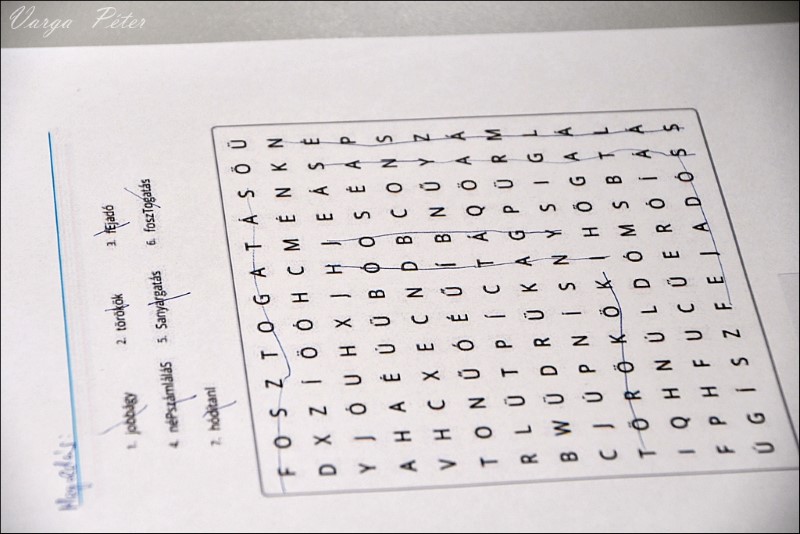 Varga Péter
Megoldás:
1. jobbágy 2. törökök 3. fejadó
4. néPszámlálás 5. Sanyargatás 6. foszTogatás
7. hódítanI
F O S Z T O G A T Á S Ö Ü
D X Z Í Ö Ó H C M É N K N
Y J Ó U H X J H J E Á S É
A H A É Ú Ü B Ó O S É A P
V H C X E C N D B C O N S
T O N Ű Ó É Ű Í B N Ű Y Z
R L Ü T P Í C T Á Q Ö A Á
B W Ü D R Ü K A G P Ü R M
C J Ú P N Í S N Y S I G L
T Ö R Ö K Ö K I H Ö G A Á
I Q H N Ü L D Ó M S B T L
F P H F U C Ü E R Ö Í Á Á
Ú G Í S Z F E J A D Ó S S